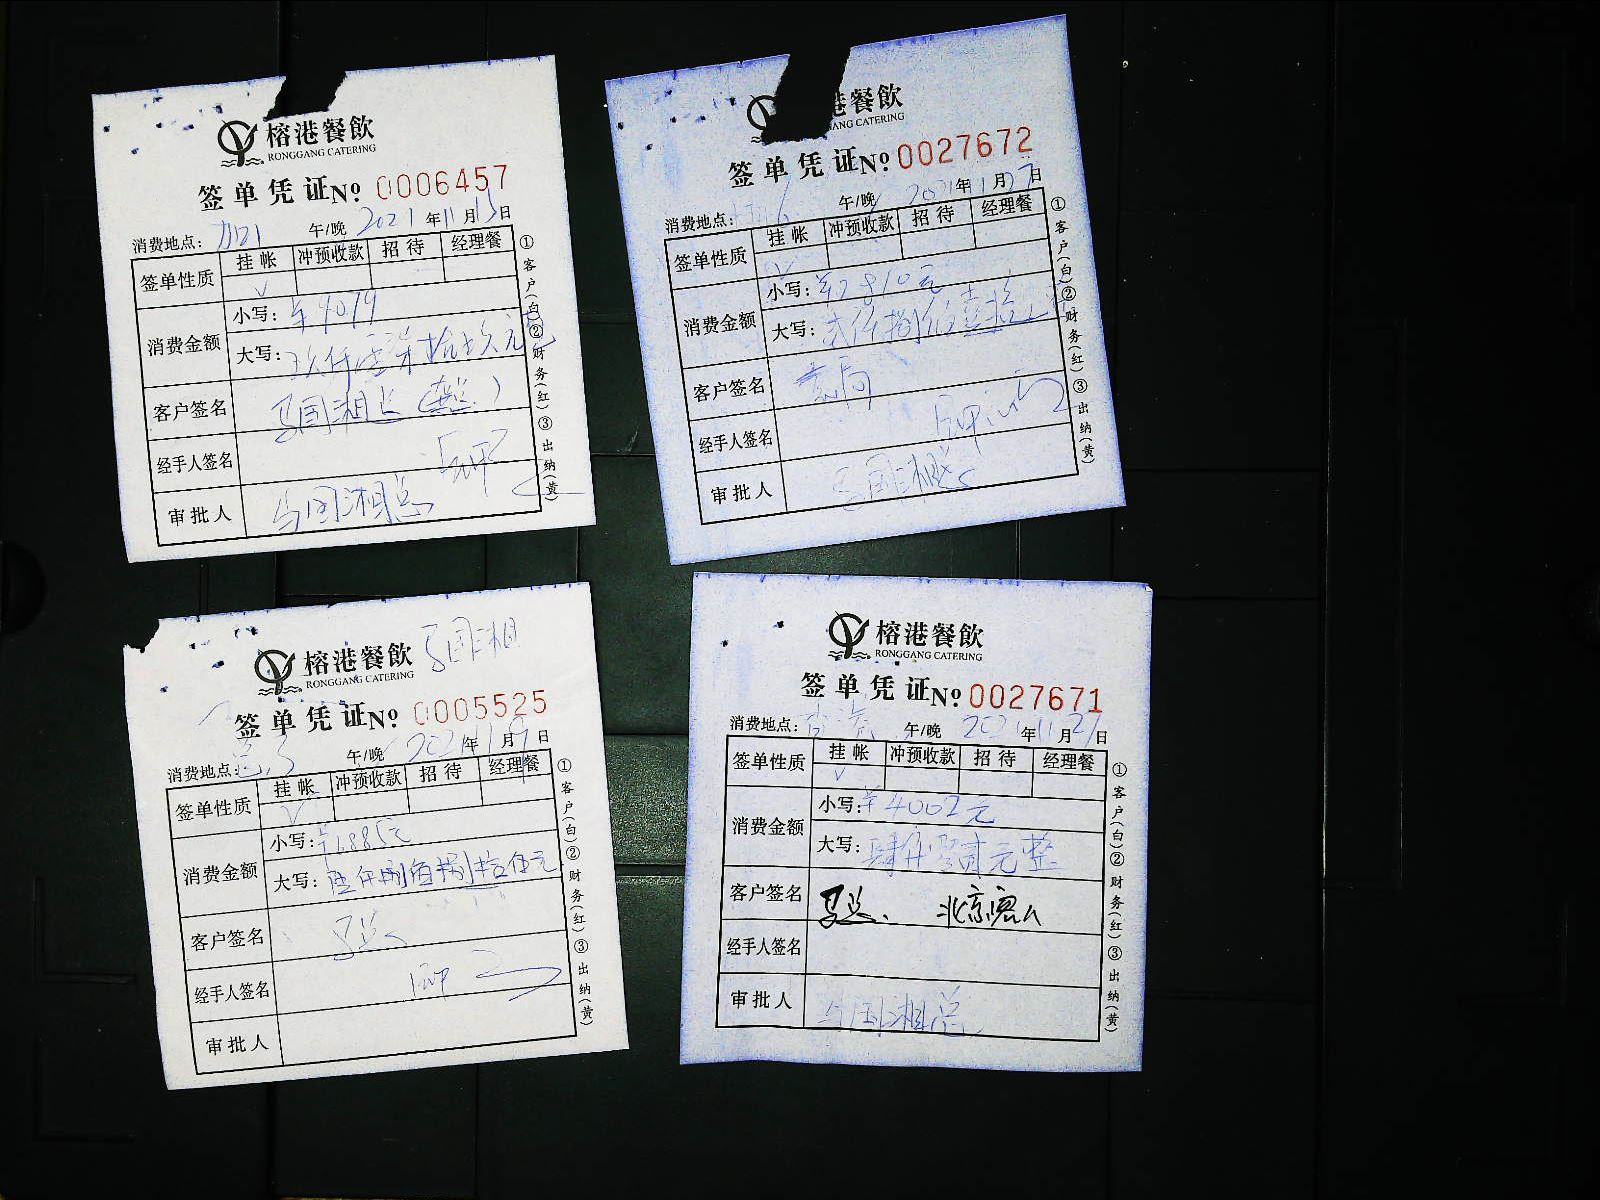 榕港餐飲
RONGGANG CATERING
签单凭证 No 0006457
消费地点: 午/晚 2021年11月13日
签单性质 挂帐 冲预收款 招待 经理餐
✓
消费金额 小写:
大写:
客户签名 马国湘总
经手人签名
审批人 马国湘总
①客户(白)②财务(红)③出纳(黄)
港餐飲
ANG CATERING
签单凭证 No 0027672
消费地点: 午/晚 2021年11月27日
签单性质 挂帐 冲预收款 招待 经理餐
✓
消费金额 小写: ¥2810元
大写: 贰仟捌佰壹拾元
客户签名
经手人签名
审批人 马国湘总
①客户(白)②财务(红)③出纳(黄)
马国湘
榕港餐飲
RONGGANG CATERING
签单凭证 No 0005525
消费地点: 午/晚 2021年11月9日
签单性质 挂帐 冲预收款 招待 经理餐
✓
消费金额 小写:
大写: 仟捌佰捌拾伍元
客户签名 马总
经手人签名
审批人
①客户(白)②财务(红)③出纳(黄)
榕港餐飲
RONGGANG CATERING
签单凭证 No 0027671
消费地点: 午/晚 2021年11月27日
签单性质 挂帐 冲预收款 招待 经理餐
✓
消费金额 小写: ¥4002元
大写: 肆仟零贰元整
客户签名 马总. 北京客人
经手人签名
审批人 马国湘总
①客户(白)②财务(红)③出纳(黄)